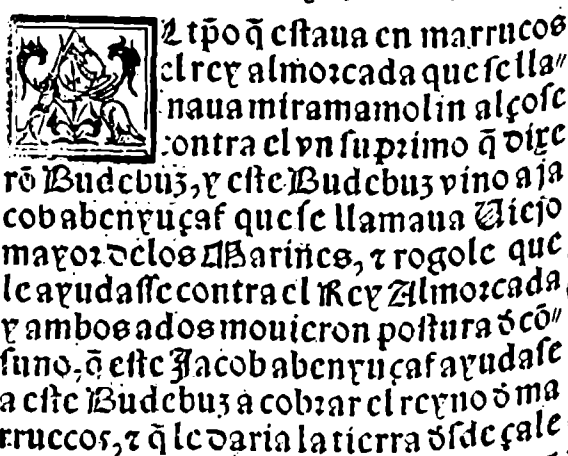 L tp̄o q̄ estaua en marrucos
el rey almorcada que se lla〃
naua miramamolin alçose
contra el vn su primo q̄ dixe
rō Budebuz, y este Budebuz vino a ja
cob abenyuçaf que se llamaua Uiejo
mayor delos Marines, ⁊ rogole que
le ayudasse contra el Rey Almorcada
y ambos ados mouieron postura đ cō〃
suno, q̄ este Jacob abenyuçaf ayudase
a este Budebuz a cobrar el reyno đ ma
rruccos, ⁊ q̄ le daria la tierra đsde çale